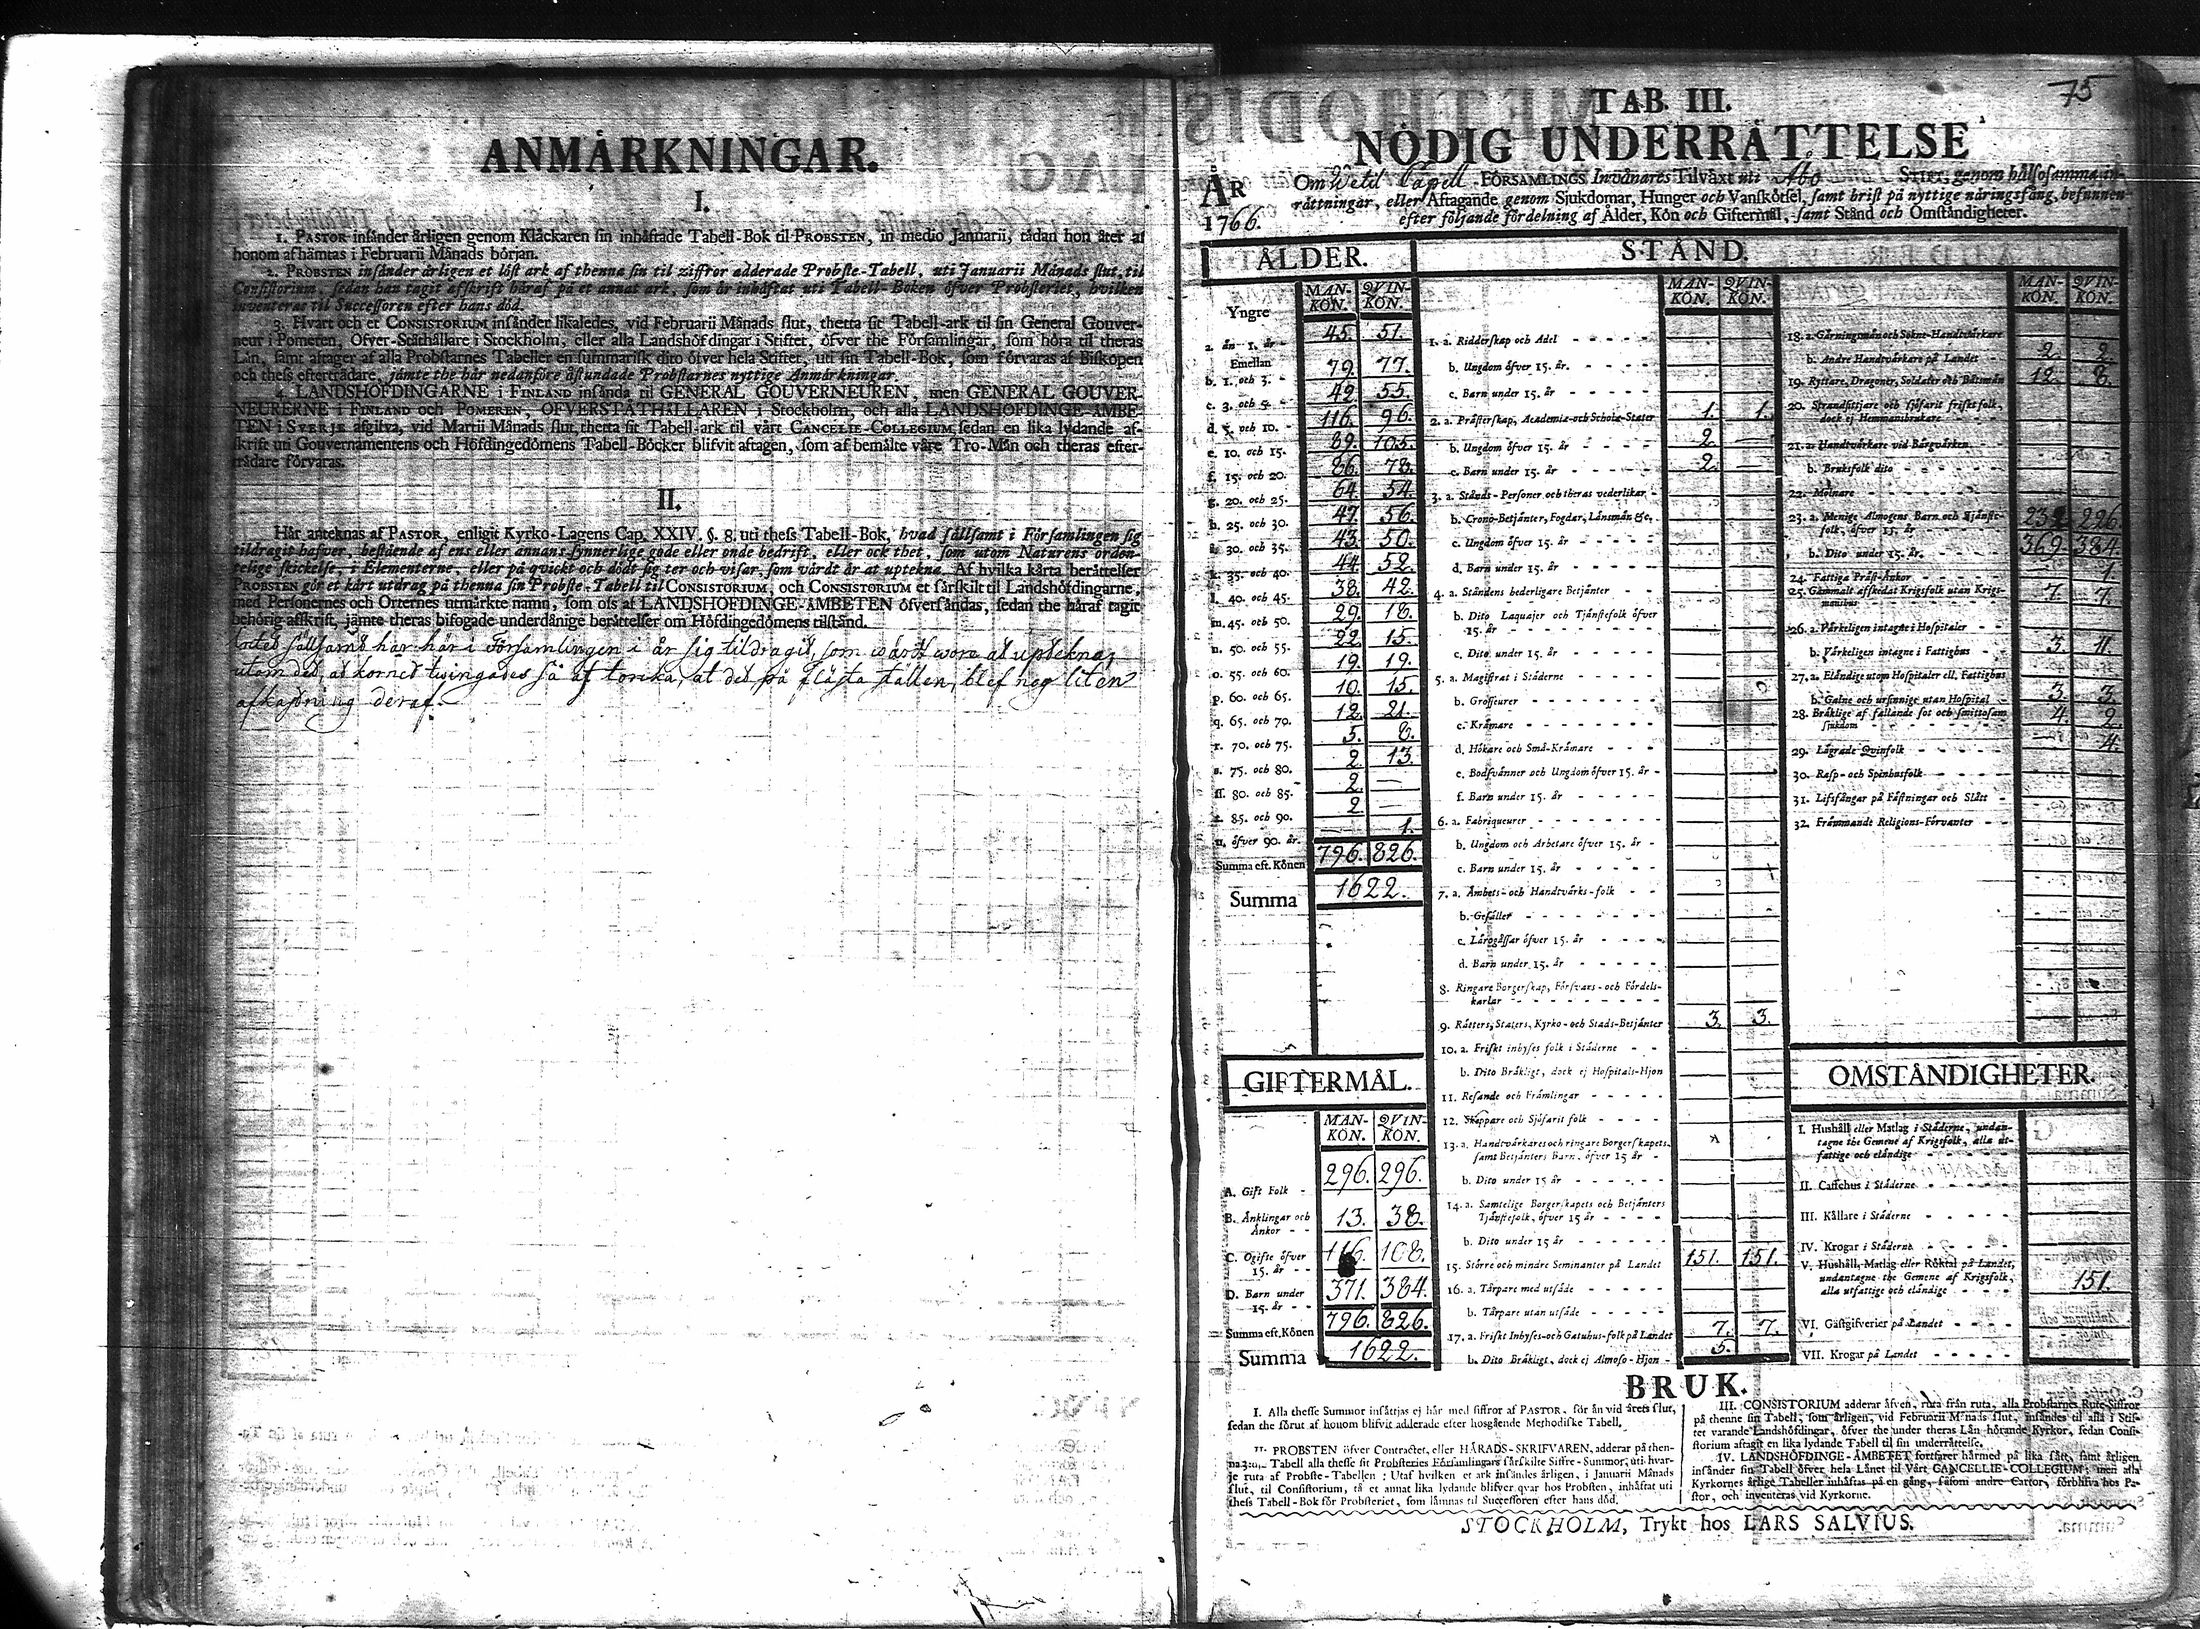 ANMÄRKNINGAR.
I.
1. PASTOR insänder årligen genom Klåckaren sin inhäftade Tabell-Bok til PROBSTEN, in medio Januarii, tådan hon åter af
honom afhämtas i Februarii Månads början.
2. PROBSTEN insänder årligen et löst ark af thenna sin til ziffror adderade Probste-Tabell, uti Januarii Månads slut, til
Consistorium, sedan han tagit afskrift häraf på et annat ark, som är inhäftat uti Tabell-Boken öfver Probsteriet, hvilken
inventeras til Successoren efter hans död.
3. Hvart och et CONSISTORIUM insänder likaledes, vid Februarii Månads slut, thetta sit Tabell-ark til sin General Gouver-
neur i Pomeren, Öfver-Ståthållare i Stockholm, eller alla Landshöfdingar i Stiftet, öfver the Församlingar, som höra til theras
Län, samt aftager af alla Probstarnes Tabeller en summarisk dito öfver hela Stiftet, uti sin Tabell-Bok, som förvaras af Biskopen
och thess efterträdare, jämte the här nedanföre åstundade Probstarnes nyttige Anmärkningar.
4. LANDSHÖFDINGARNE i FINLAND insända til GENERAL GOUVERNEUREN, men GENERAL GOUVER-
NEURERNE i FINLAND och POMEREN, ÖFVERSTÅTHÅLLAREN i Stockholm, och alla LANDSHÖFDINGE-ÄMBE-
TEN i SVERJE afgifva, vid Martii Månads slut, thetta sit Tabell-ark til vårt CANCELIE-COLLEGIUM, sedan en lika lydande af-
skrift uti Gouvernamentens och Höfdingedömens Tabell-Böcker blifvit aftagen, som af bemälte våre Tro-Män och theras efter-
trädare förvaras.
II.
Här anteknas af PASTOR, enligit Kyrko-Lagens Cap. XXIV. §. 8. uti thess Tabell-Bok, hvad sällsamt i Församlingen sig
tildragit hafver, bestående af ens eller annans synnerlige gode eller onde bedrift, eller ock thet, som utom Naturens orden-
telige skickelse, i Elementerne, eller på qvickt och dödt sig ter och visar, som värdt är at uptekna. Af hvilka kårta berättelser
PROBSTEN gör et kårt utdrag på thenna sin Probste-Tabell til CONSISTORIUM, och CONSISTORIUM et särskilt til Landshöfdingarne,
med Personernes och Orternes utmärkte namn, som oss af LANDSHÖFDINGE-ÄMBETEN öfversändas, sedan the häraf tagit
behörig afskrift, jämte theras bifogade underdånige berättelser om Höfdingedömens tilstånd.
Intet sällsamt har här i Församlingen i år sig tildragit, som wärdt wore at uptekna,
utom det, at kornet twingades så af torcka, at det på flästa ställen, blef nog liten
afkastning deraf.
75
TAB. III.
NÖDIG UNDERRÄTTELSE
ÅR 1766.
Om Wetil Capell FÖRSAMLINGS Invånares Tilväxt uti Åbo STIFT, genom hälsosamma in-
rättningar, eller Aftagande genom Sjukdomar, Hunger och Vanskötsel, samt brist på nyttige näringsfång, befunnen
efter följande fördelning af Ålder, Kön och Giftermål, samt Stånd och Omständigheter.
ÅLDER.
MAN-KÖN. QVIN-KÖN.
Yngre
a. än 1. år 45. 51.
Emellan
b. 1. och 3. 79. 77.
c. 3. och 5. 42. 55.
d. 5. och 10. 116. 96.
e. 10. och 15. 89. 105.
f. 15. och 20. 86. 78.
g. 20. och 25. 64. 54.
h. 25. och 30. 47. 56.
i. 30. och 35. 43. 50.
k. 35. och 40. 44. 52.
l. 40. och 45. 38. 42.
m. 45. och 50. 29. 18.
n. 50. och 55. 22. 15.
o. 55. och 60. 19. 19.
p. 60. och 65. 10. 15.
q. 65. och 70. 12. 21.
r. 70. och 75. 5. 8.
s. 75. och 80. 2. 13.
ss. 80. och 85. 2. —
t. 85. och 90. 2. —
u. öfver 90. år. 1.
Summa eft. Könen 796. 826.
Summa 1622.
GIFTERMÅL.
MAN-KÖN. QVIN-KÖN.
A. Gift Folk - 296. 296.
B. Änklingar och
Änkor - - 13. 38.
C. Ogifte öfver
15. år - - 116. 108.
D. Barn under
15. år - - 371. 384.
Summa eft. Könen 796. 826.
Summa 1622.
STÅND.
MAN-KÖN. QVIN-KÖN.
1. a. Ridderskap och Adel
b. Ungdom öfver 15. år.
c. Barn under 15. år
2. a. Prästerskap, Academiæ-och Scholæ-Stater 1. 1.
b. Ungdom öfver 15. år 2. —
c. Barn under 15. år 2. —
3. a. Stånds-Personer och theras vederlikar
b. Crono-Betjänter, Fogdar, Länsmän &c.
c. Ungdom öfver 15. år
d. Barn under 15. år
4. a. Ståndens hederligare Betjänter
b. Dito Laquajer och Tjänstefolk öfver
15. år
c. Dito under 15. år
5. a. Magistrat i Städerne
b. Grosseurer
c. Krämare
d. Hökare och Små-Krämare
e. Bodsvänner och Ungdom öfver 15. år
f. Barn under 15. år
6. a. Fabriqueurer
b. Ungdom och Arbetare öfver 15. år
c. Barn under 15. år
7. a. Ämbets-och Handtvärks-folk
b. Gesäller
c. Lärogåssar öfver 15. år
d. Barn under 15. år
8. Ringare Borgerskap, Försvars-och Fördels-
karlar
9. Rätters, Staters, Kyrko-och Stads-Betjänter 3. 3.
10. a. Friskt inhyses folk i Städerne
b. Dito Bräkligt, dock ej Hospitals-Hjon
11. Resande och Främlingar
12. Skeppare och Sjöfarit folk
13. a. Handtvärkares och ringare Borgerskapets,
samt Betjänters Barn, öfver 15 år
b. Dito under 15 år
14. a. Samtelige Borgerskapets och Betjänters
Tjänstefolk, öfver 15 år
b. Dito under 15 år
15. Större och mindre Seminanter på Landet 151. 151.
16. a. Tårpare med utsäde
b. Tårpare utan utsäde
17. a. Friskt Inhyses-och Gatuhus-folk på Landet 7. 7.
b. Dito Bräkligt, dock ej Almoso-Hjon 5.
MAN-KÖN. QVIN-KÖN.
18. a. Gärningsmän och Sokne-Handtvärkare
b. Andre Handtvärkare på Landet 2. 2.
19. Ryttare, Dragoner, Soldater och Båtsmän 12. 8.
20. Strandsittjare och Sjöfarit friskt folk,
dock ej Hemmansbrukare
21. a. Handtvärkare vid Bärgvärken
b. Bruksfolk dito
22. Mölnare
23. a. Menige Almogens Barn och Tjänste-
folk, öfver 15. år 232 226
b. Dito under 15. år. 369. 384.
24. Fattiga Präst-Änkor 1.
25. Gammalt afskedat Krigsfolk utan Krigs-
mansbus 7. 7.
26. a. Värkeligen intagne i Hospitaler
b. Värkeligen intagne i Fattighus 3. 11.
27. a. Eländige utom Hospitaler ell. Fattighus
b. Galne och ursinnige utan Hospital 3. 3.
28. Bräklige af fallande sot och smittosam
sjukdom 4. 2.
29. Lägrade Qvinfolk 4.
30. Rasp-och Spinhusfolk
31. Lifsfångar på Fästningar och Slått
32. Främmande Religions-Förvanter
OMSTÄNDIGHETER.
I. Hushåll eller Matlag i Städerne, undan-
tagne the Gemene af Krigsfolk, alla ut-
fattige och eländige
II. Caffehus i Städerne
III. Källare i Städerne
IV. Krogar i Städerne
V. Hushåll, Matlag eller Röktal på Landet,
undantagne the Gemene af Krigsfolk,
alla utfattige och eländige 151.
VI. Gästgifverier på Landet
VII. Krogar på Landet
BRUK.
I. Alla thesse Summor insättjas ej här med siffror af PASTOR, för än vid årets slut,
sedan the förut af honom blifvit adderade efter hosgående Methodiske Tabell.
II. PROBSTEN öfver Contractet, eller HÄRADS-SKRIFVAREN, adderar på then-
na 3:die Tabell alla thesse sit Probsteries Församlingars särskilte Siffre-Summor, uti hvar-
je ruta af Probste-Tabellen: Utaf hvilken et ark insändes årligen, i Januarii Månads
slut, til Consistorium, så et annat lika lydande blifver qvar hos Probsten, inhäftat uti
thess Tabell-Bok för Probsteriet, som lämnas til Successoren efter hans död.
III. CONSISTORIUM adderar äfven, ruta från ruta, alla Probstarnes Rute-Siffror
på thenne sin Tabell, som årligen, vid Februarii M'nads slut, insändes til alla i Stif-
tet varande Landshöfdingar, öfver the under theras Län hörande Kyrkor, sedan Consi-
storium aftagit en lika lydande Tabell til sin underrättelse.
IV. LANDSHÖFDINGE-ÄMBETET fortfarer härmed på lika sätt, samt årligen
insänder sin Tabell öfver hela Länet til Vårt CANCELLIE-COLLEGIUM; men alla
Kyrkornes årlige Tabeller inhäftas på en gång, såsom andre Cartor, förblifva hos Pa-
stor, och inventeras vid Kyrkorne.
STOCKHOLM, Trykt hos LARS SALVIUS.